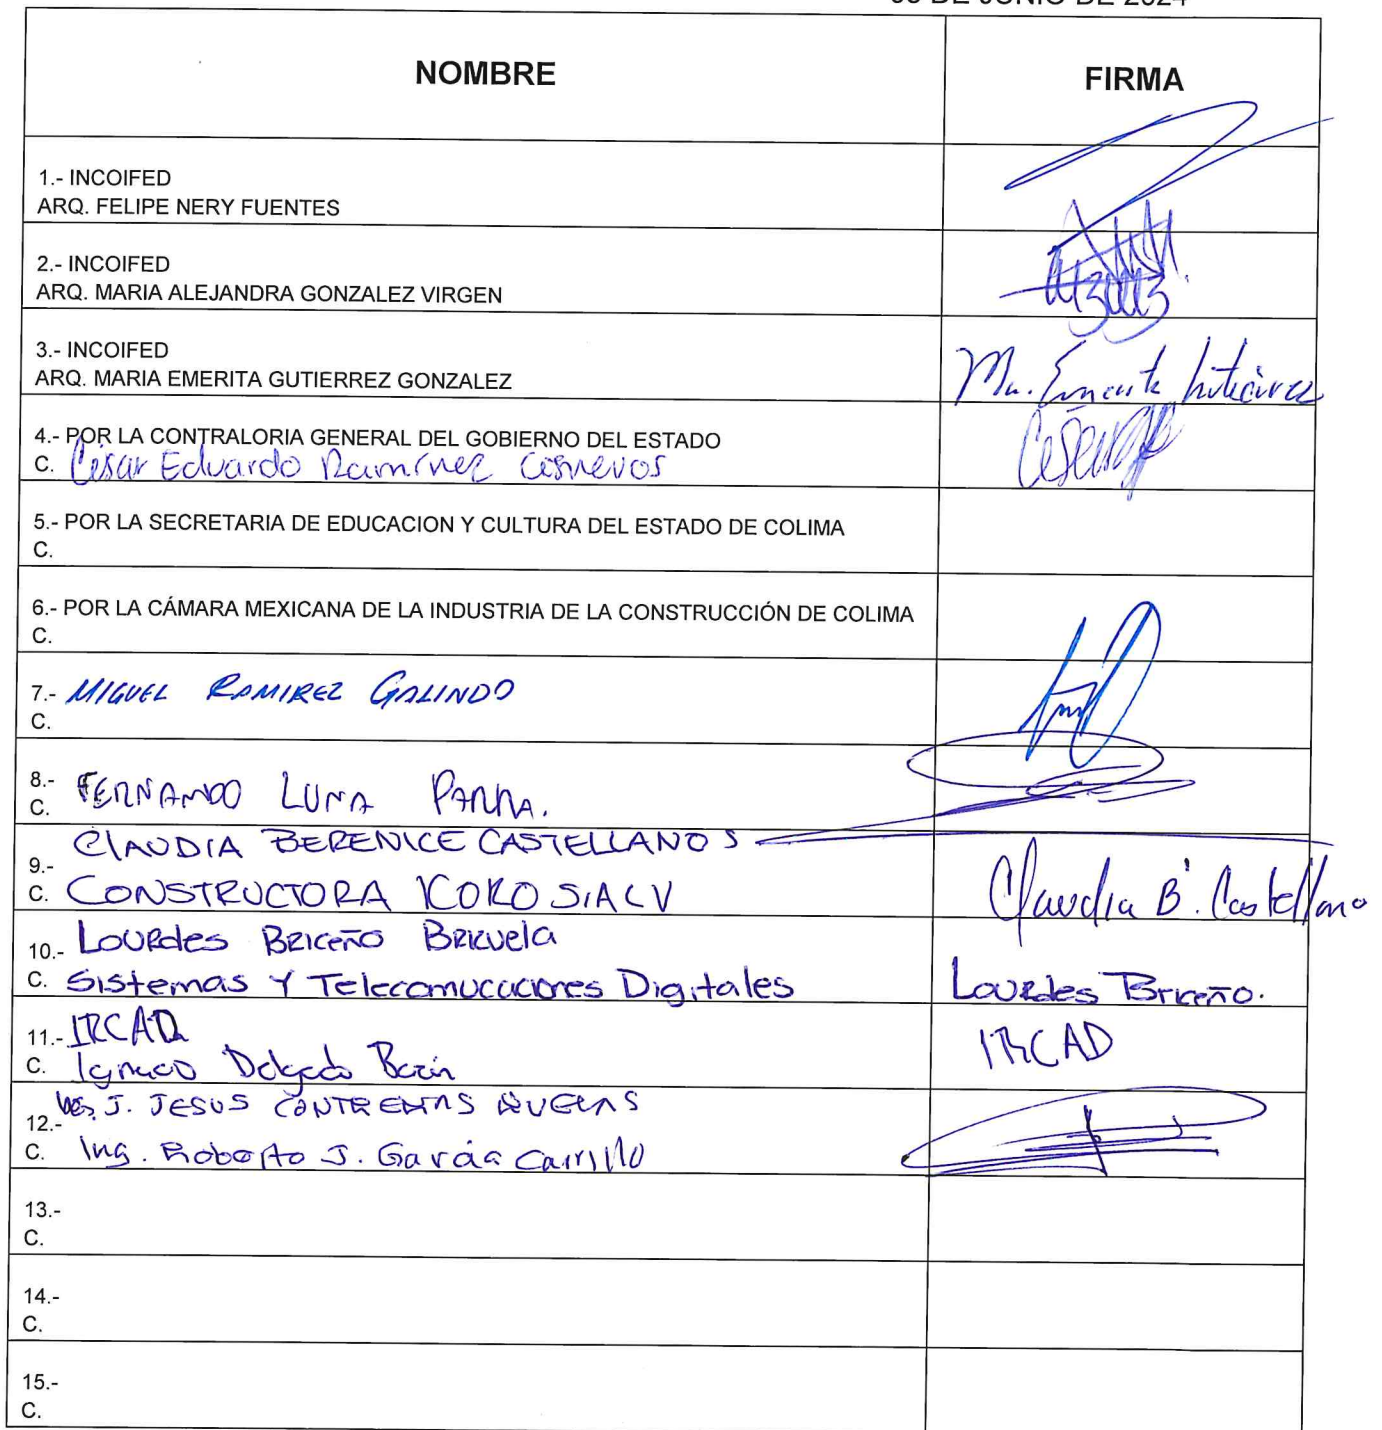 DE JUNIO DE 2024
NOMBRE
FIRMA
1.- INCOIFED
ARQ. FELIPE NERY FUENTES
2.- INCOIFED
ARQ. MARIA ALEJANDRA GONZALEZ VIRGEN
3.- INCOIFED
ARQ. MARIA EMERITA GUTIERREZ GONZALEZ
Ma. Gutiérrez
4.- POR LA CONTRALORIA GENERAL DEL GOBIERNO DEL ESTADO
C. César Eduardo Ramírez
5.- POR LA SECRETARIA DE EDUCACION Y CULTURA DEL ESTADO DE COLIMA
C.
6.- POR LA CÁMARA MEXICANA DE LA INDUSTRIA DE LA CONSTRUCCIÓN DE COLIMA
C.
7.- MIGUEL RAMIREZ GALINDO
C.
8.- FERNANDO LUNA PARRA.
C.
CLAUDIA BERENICE CASTELLANOS
9.-
C. CONSTRUCTORA KORO
Claudia B. Castellano
10.- LOURdes BRICEÑO BRIZUela
C. Sistemas Y Telecomucaciones Digitales
LOURdes BRICEÑO.
11.- IRCAD
C. Ignacio Delgado
IRCAD
J. JESUS CONTRERAS
12.-
C. Ing. Roberto J. García Carrillo
13.-
C.
14.-
C.
15.-
C.